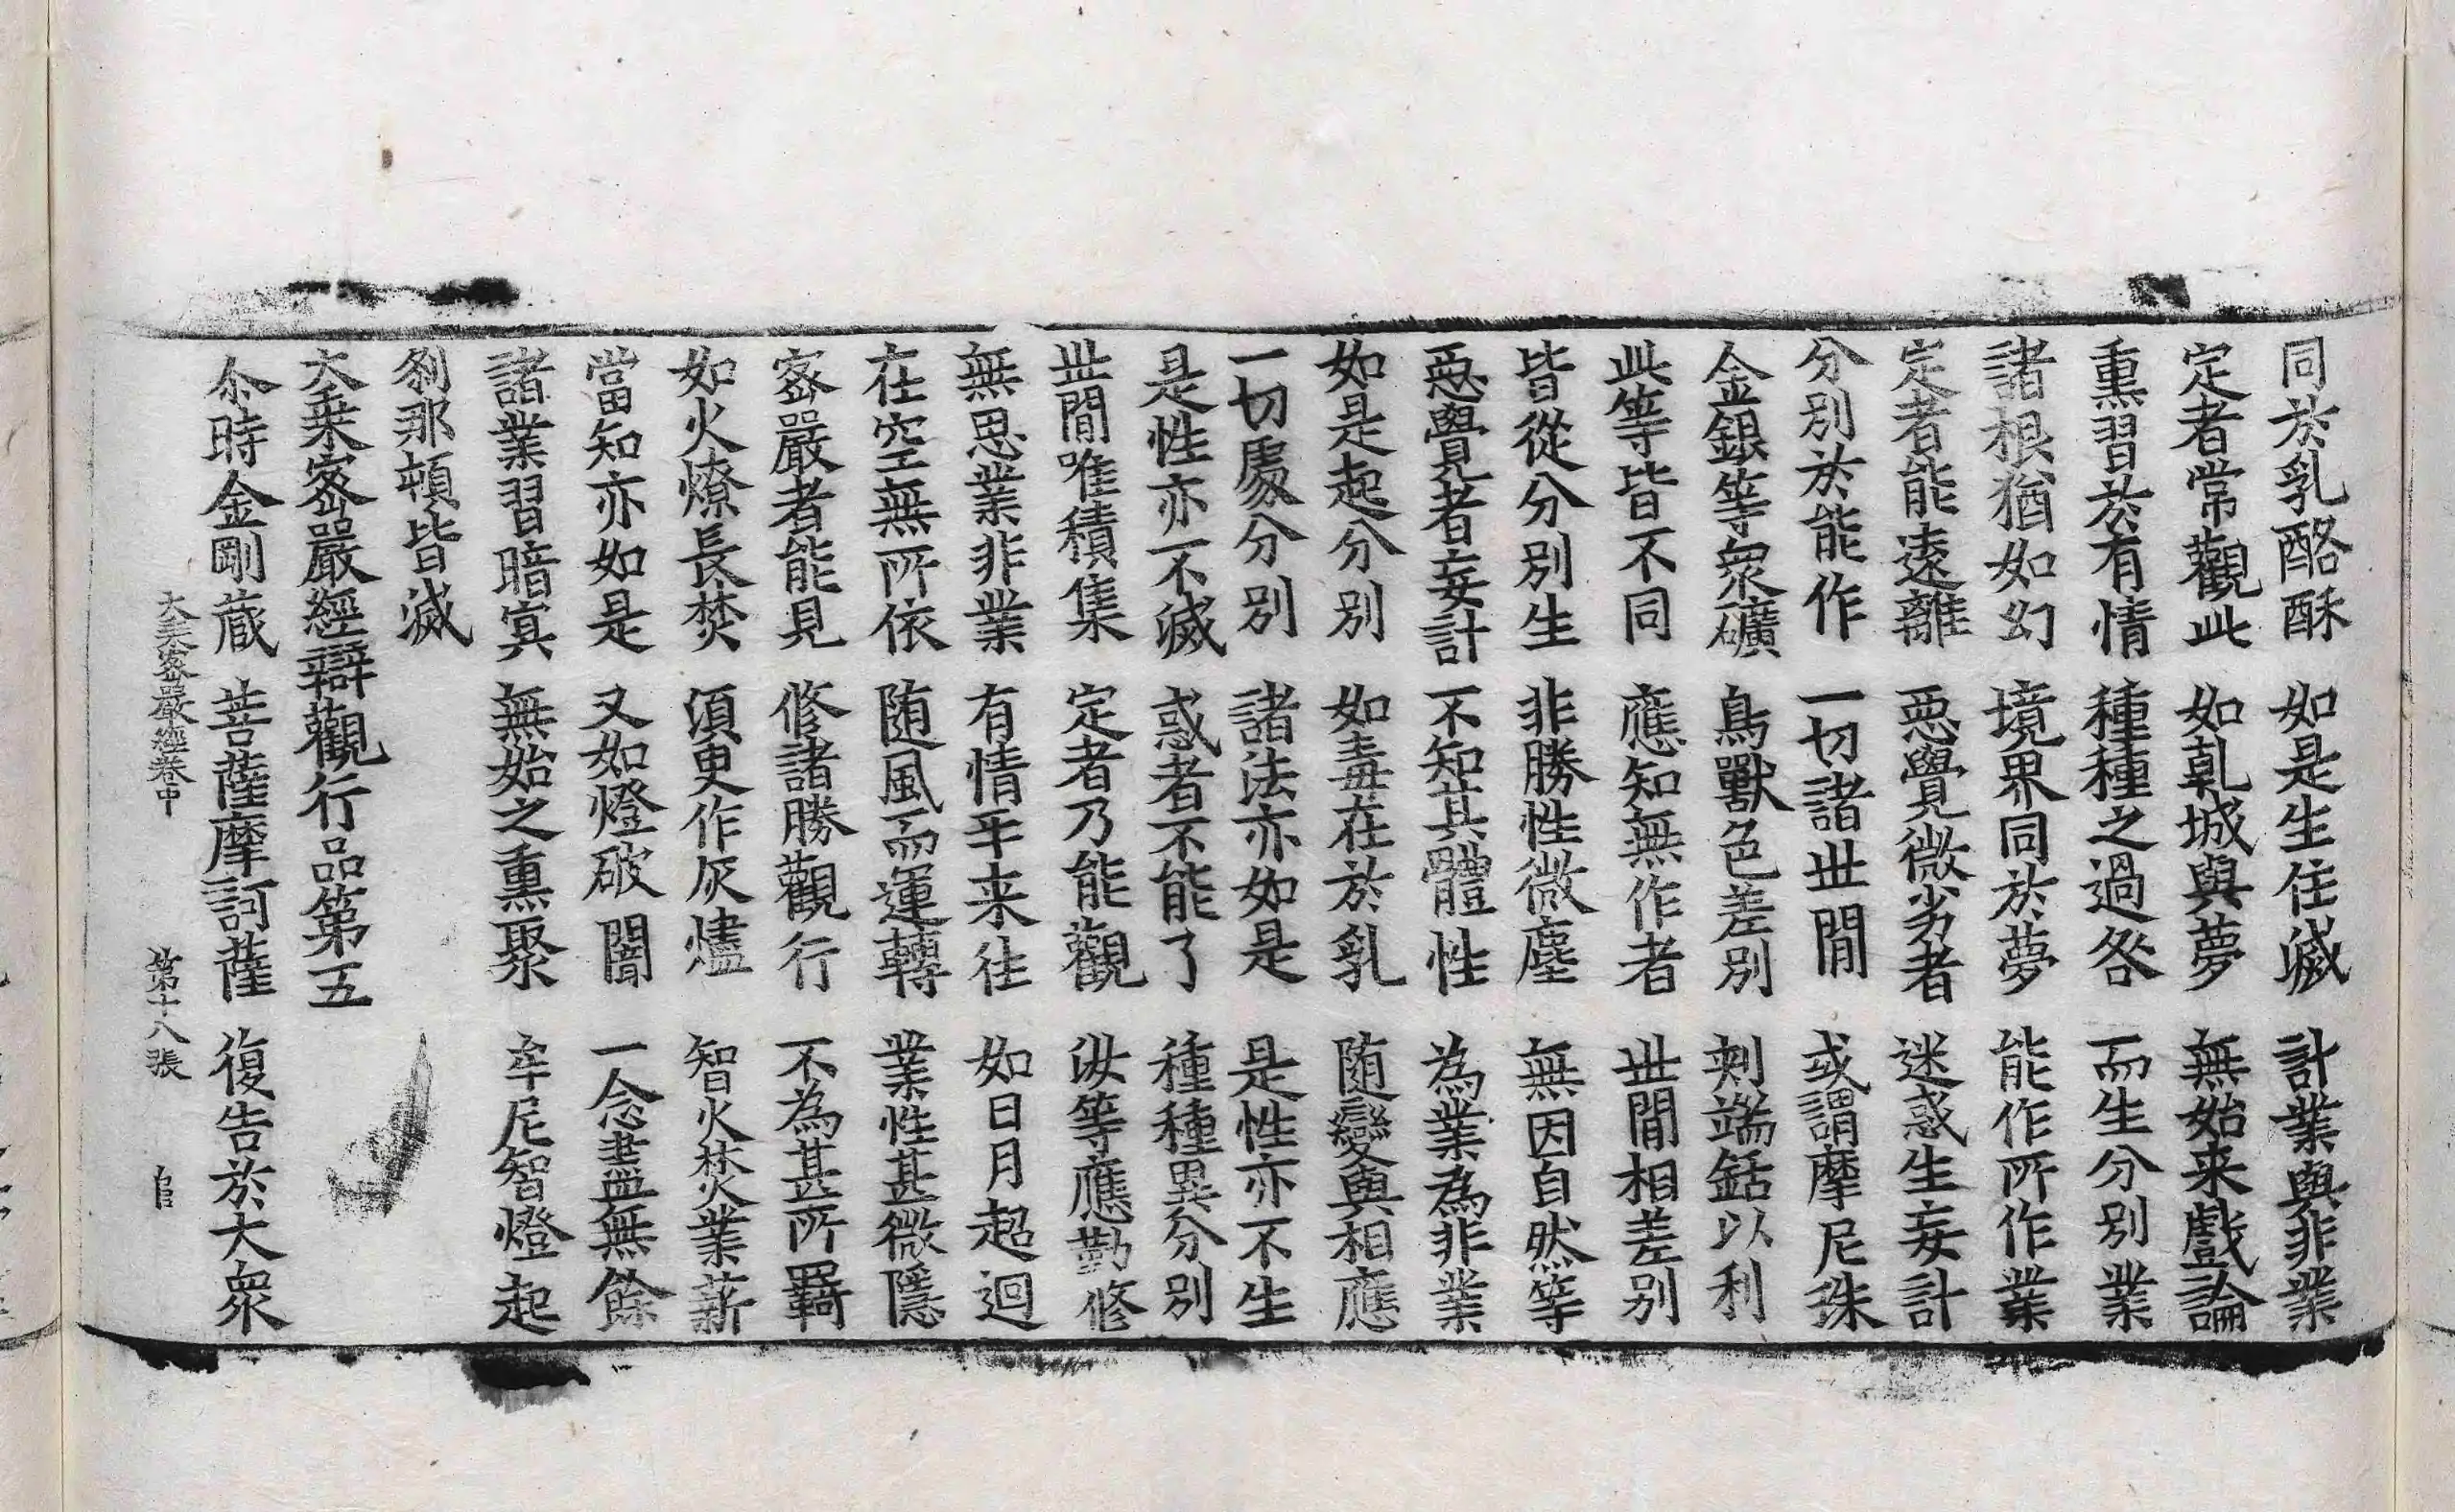 同於乳酪酥　如是生住滅　計業與非業
定者常觀此　如乹城與夢　無始来戲論
熏習於有情　種種之過咎　而生分別業
諸根猶如幻　境界同於夢　能作所作業
定者能遠離　惡覺微劣者　迷惑生妄計
分別於能作　一切諸世間　或謂摩尼珠
金銀等衆礦　鳥獸色差別　刺端銛以利
此等皆不同　應知無作者　世間相差別
皆從分別生　非勝性微塵　無因自然等
惡覺者妄計　不知其體性　為業為非業
如是起分別　如毒在於乳　随變與相應
一切處分別　諸法亦如是　是性亦不生
是性亦不滅　惑者不能了　種種異分別
世間唯積集　定者乃能觀　汝等應勤修
無思業非業　有情平来往　如日月超迴
在空無所依　随風而運轉　業性甚微隱
密嚴者能見　修諸勝觀行　不為甚所羇
如火燎長焚　須更作灰燼　智火焚業薪
當知亦如是　又如燈破闇　一念盡無餘
諸業習暗冥　無始之熏聚　牟尼智燈起
刹那頓皆滅
大乗密嚴經辯觀行品第五
尒時金剛蔵菩薩摩訶薩復告於大衆
大乗密嚴經卷中　第十八張